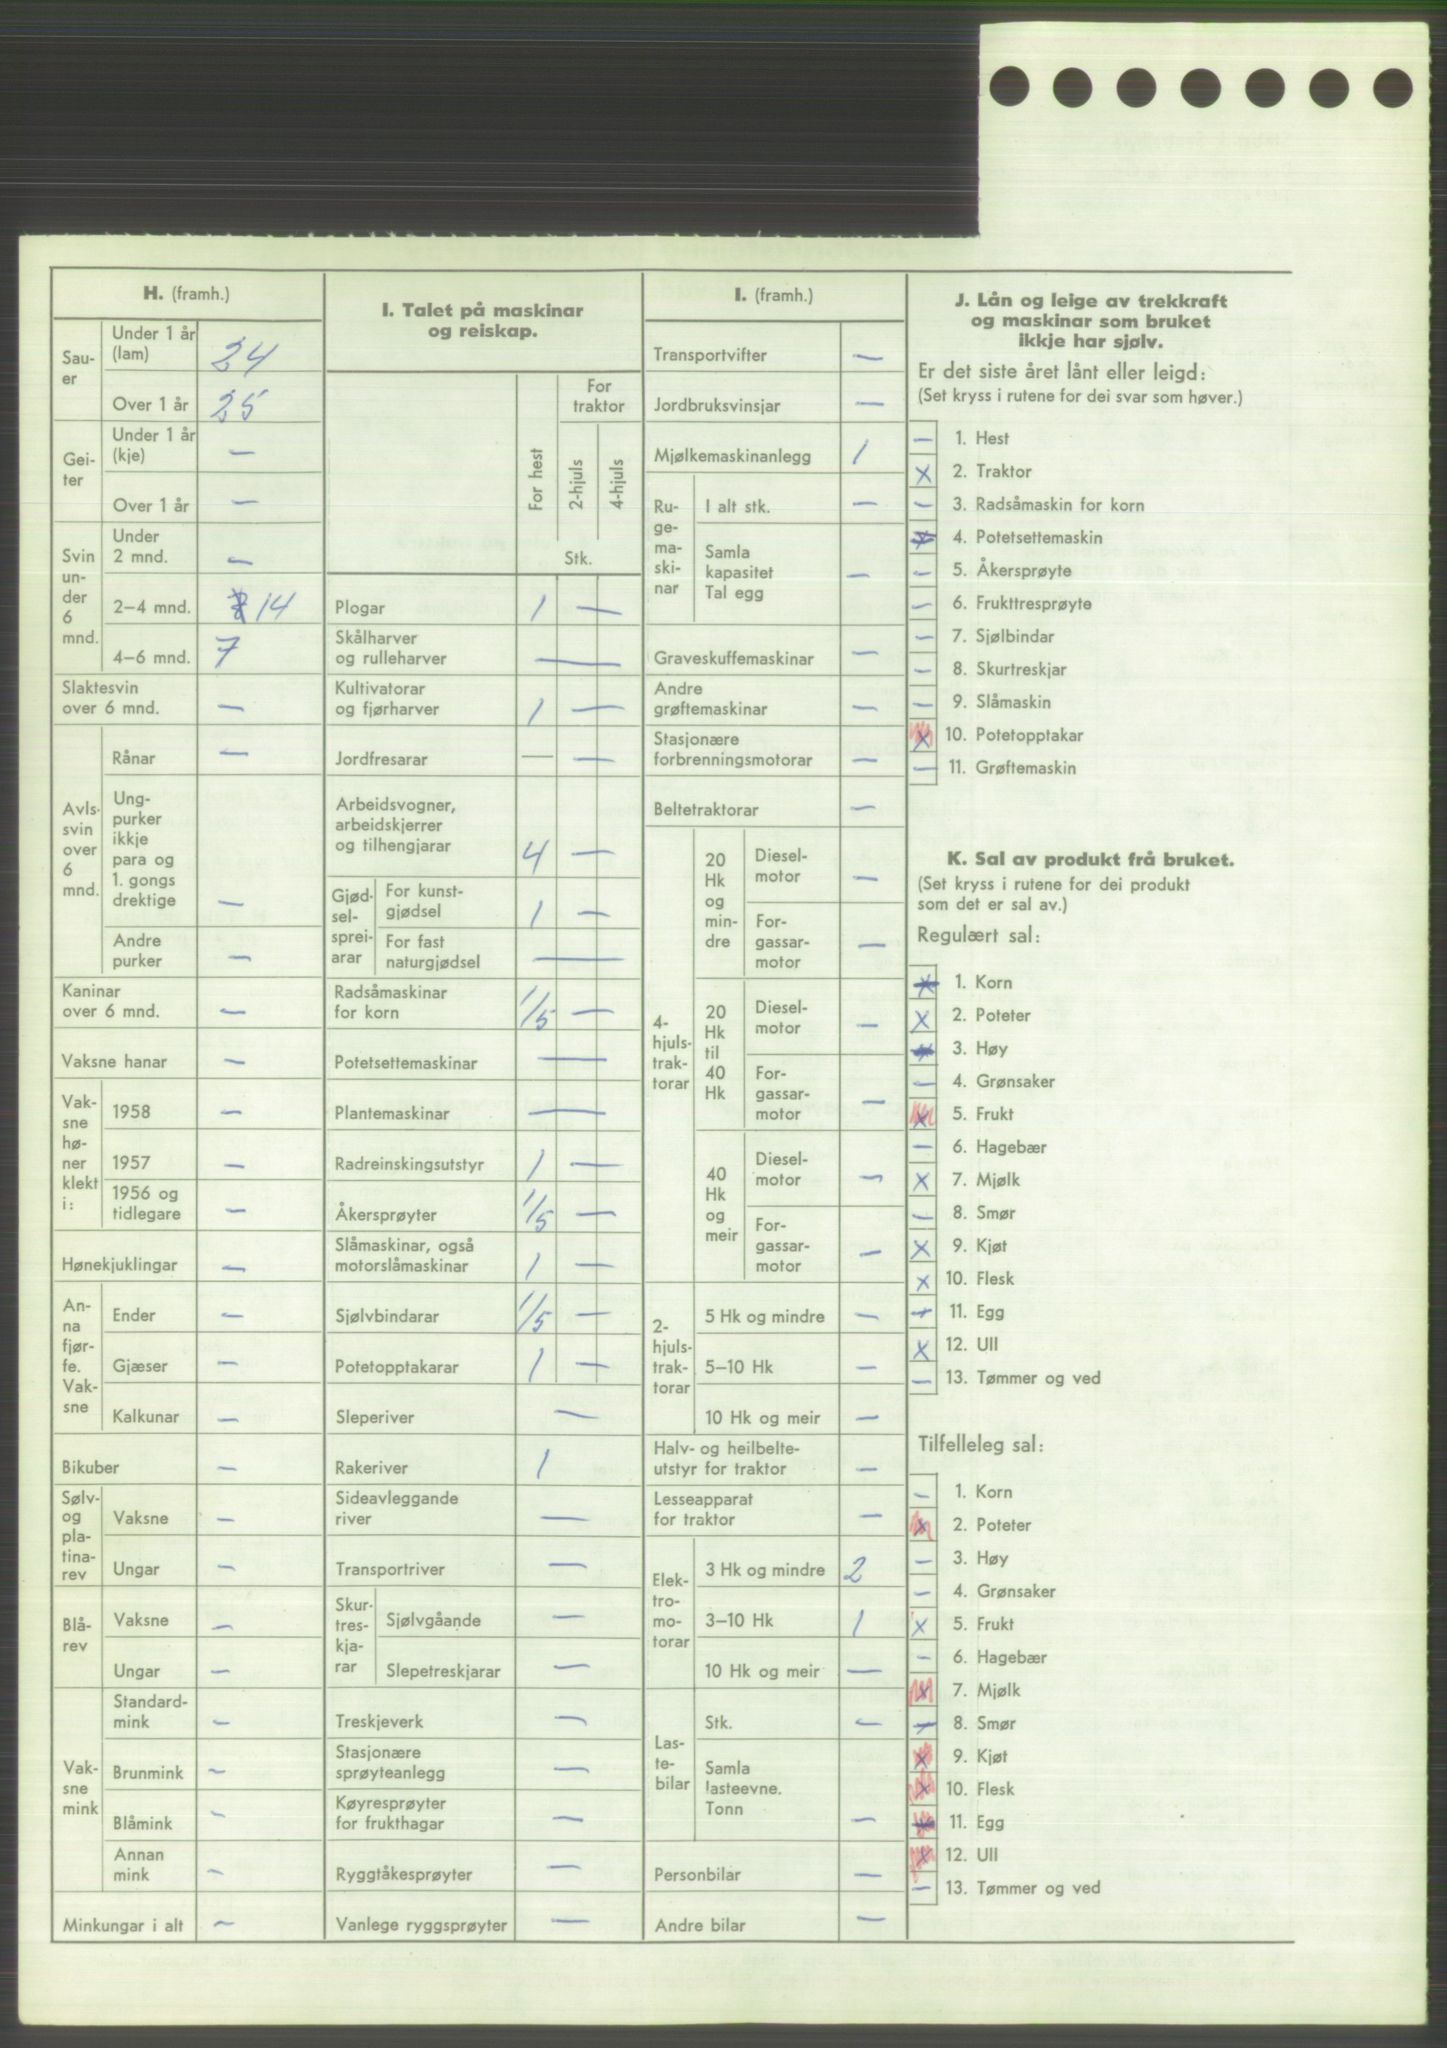 H. (framh.)
Sau-
er
Under 1 år
(lam) 24
Over 1 år 25
Gei-
ter
Under 1 år
(kje) —
Over 1 år —
Svin
un-
der
6
mnd.
Under
2 mnd. —
2–4 mnd. 14
4–6 mnd. 7
Slaktesvin
over 6 mnd. —
Avls-
svin
over
6
mnd.
Rånar —
Ung-
purker
ikkje
para og
1. gongs
drektige —
Andre
purker —
Kaninar
over 6 mnd. —
Vaksne hanar —
Vak-
sne
hø-
ner
klekt
i:
1958 —
1957 —
1956 og
tidlegare —
Hønekjuklingar —
An-
na
fjør-
fe.
Vak-
sne
Ender —
Gjæser —
Kalkunar —
Bikuber —
Sølv-
og
pla-
tina-
rev
Vaksne —
Ungar —
Blå-
rev
Vaksne —
Ungar —
Vak-
sne
mink
Standard-
mink —
Brunmink —
Blåmink —
Annan
mink —
Minkungar i alt —
I. Talet på maskinar
og reiskap.
For hest
For
traktor
2-hjuls
4-hjuls
Stk.
Plogar 1 —
Skålharver
og rulleharver —
Kultivatorar
og fjørharver 1 —
Jordfresarar — —
Arbeidsvogner,
arbeidskjerrer
og tilhengjarar 4 —
Gjød-
sel-
sprei-
arar
For kunst-
gjødsel 1 —
For fast
naturgjødsel —
Radsåmaskinar
for korn 1/5 —
Potetsettemaskinar —
Plantemaskinar —
Radreinskingsutstyr 1 —
Åkersprøyter 1/5 —
Slåmaskinar, også
motorslåmaskinar 1 —
Sjølvbindarar 1/5 —
Potetopptakarar 1 —
Sleperiver —
Rakeriver 1
Sideavleggande
river —
Transportriver —
Skur-
tres-
kja-
rar
Sjølvgåande —
Slepetreskjarar —
Treskjeverk —
Stasjonære
sprøyteanlegg —
Køyresprøyter
for frukthagar —
Ryggtåkesprøyter —
Vanlege ryggsprøyter —
I. (framh.)
Transportvifter —
Jordbruksvinsjar —
Mjølkemaskinanlegg 1
Ru-
ge-
ma-
ski-
nar
I alt stk. —
Samla
kapasitet
Tal egg —
Graveskuffemaskinar —
Andre
grøftemaskinar —
Stasjonære
forbrenningsmotorar —
Beltetraktorar —
4-
hjuls-
trak-
torar
20
Hk
og
min-
dre
Diesel-
motor —
For-
gassar-
motor —
20
Hk
til
40
Hk
Diesel-
motor —
For-
gassar-
motor —
40
Hk
og
meir
Diesel-
motor —
For-
gassar-
motor —
2-
hjuls-
trak-
torar
5 Hk og mindre —
5–10 Hk —
10 Hk og meir —
Halv- og heilbelte-
utstyr for traktor —
Lesseapparat
for traktor —
Elek-
tro-
mo-
torar
3 Hk og mindre 2
3–10 Hk 1
10 Hk og meir —
Las-
te-
bilar
Stk. —
Samla
lasteevne.
Tonn —
Personbilar —
Andre bilar —
J. Lån og leige av trekkraft
og maskinar som bruket
ikkje har sjølv.
Er det siste året lånt eller leigd:
(Set kryss i rutene for dei svar som høver.)
— 1. Hest
x 2. Traktor
— 3. Radsåmaskin for korn
x 4. Potetsettemaskin
— 5. Åkersprøyte
— 6. Frukttresprøyte
— 7. Sjølbindar
— 8. Skurtreskjar
— 9. Slåmaskin
x 10. Potetopptakar
— 11. Grøftemaskin
K. Sal av produkt frå bruket.
(Set kryss i rutene for dei produkt
som det er sal av.)
Regulært sal:
x 1. Korn
x 2. Poteter
x 3. Høy
— 4. Grønsaker
x 5. Frukt
— 6. Hagebær
x 7. Mjølk
— 8. Smør
x 9. Kjøt
x 10. Flesk
x 11. Egg
x 12. Ull
— 13. Tømmer og ved
Tilfelleleg sal:
— 1. Korn
x 2. Poteter
— 3. Høy
— 4. Grønsaker
x 5. Frukt
— 6. Hagebær
x 7. Mjølk
— 8. Smør
x 9. Kjøt
x 10. Flesk
x 11. Egg
x 12. Ull
— 13. Tømmer og ved